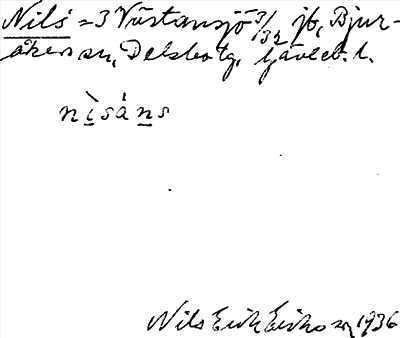 Nils = 3 Västansjö 3/32 jb, Bjur-
åkers sn, Delsbo tg, Gävleb. l.
nìsáns
Nils Erik Eriksson 1936